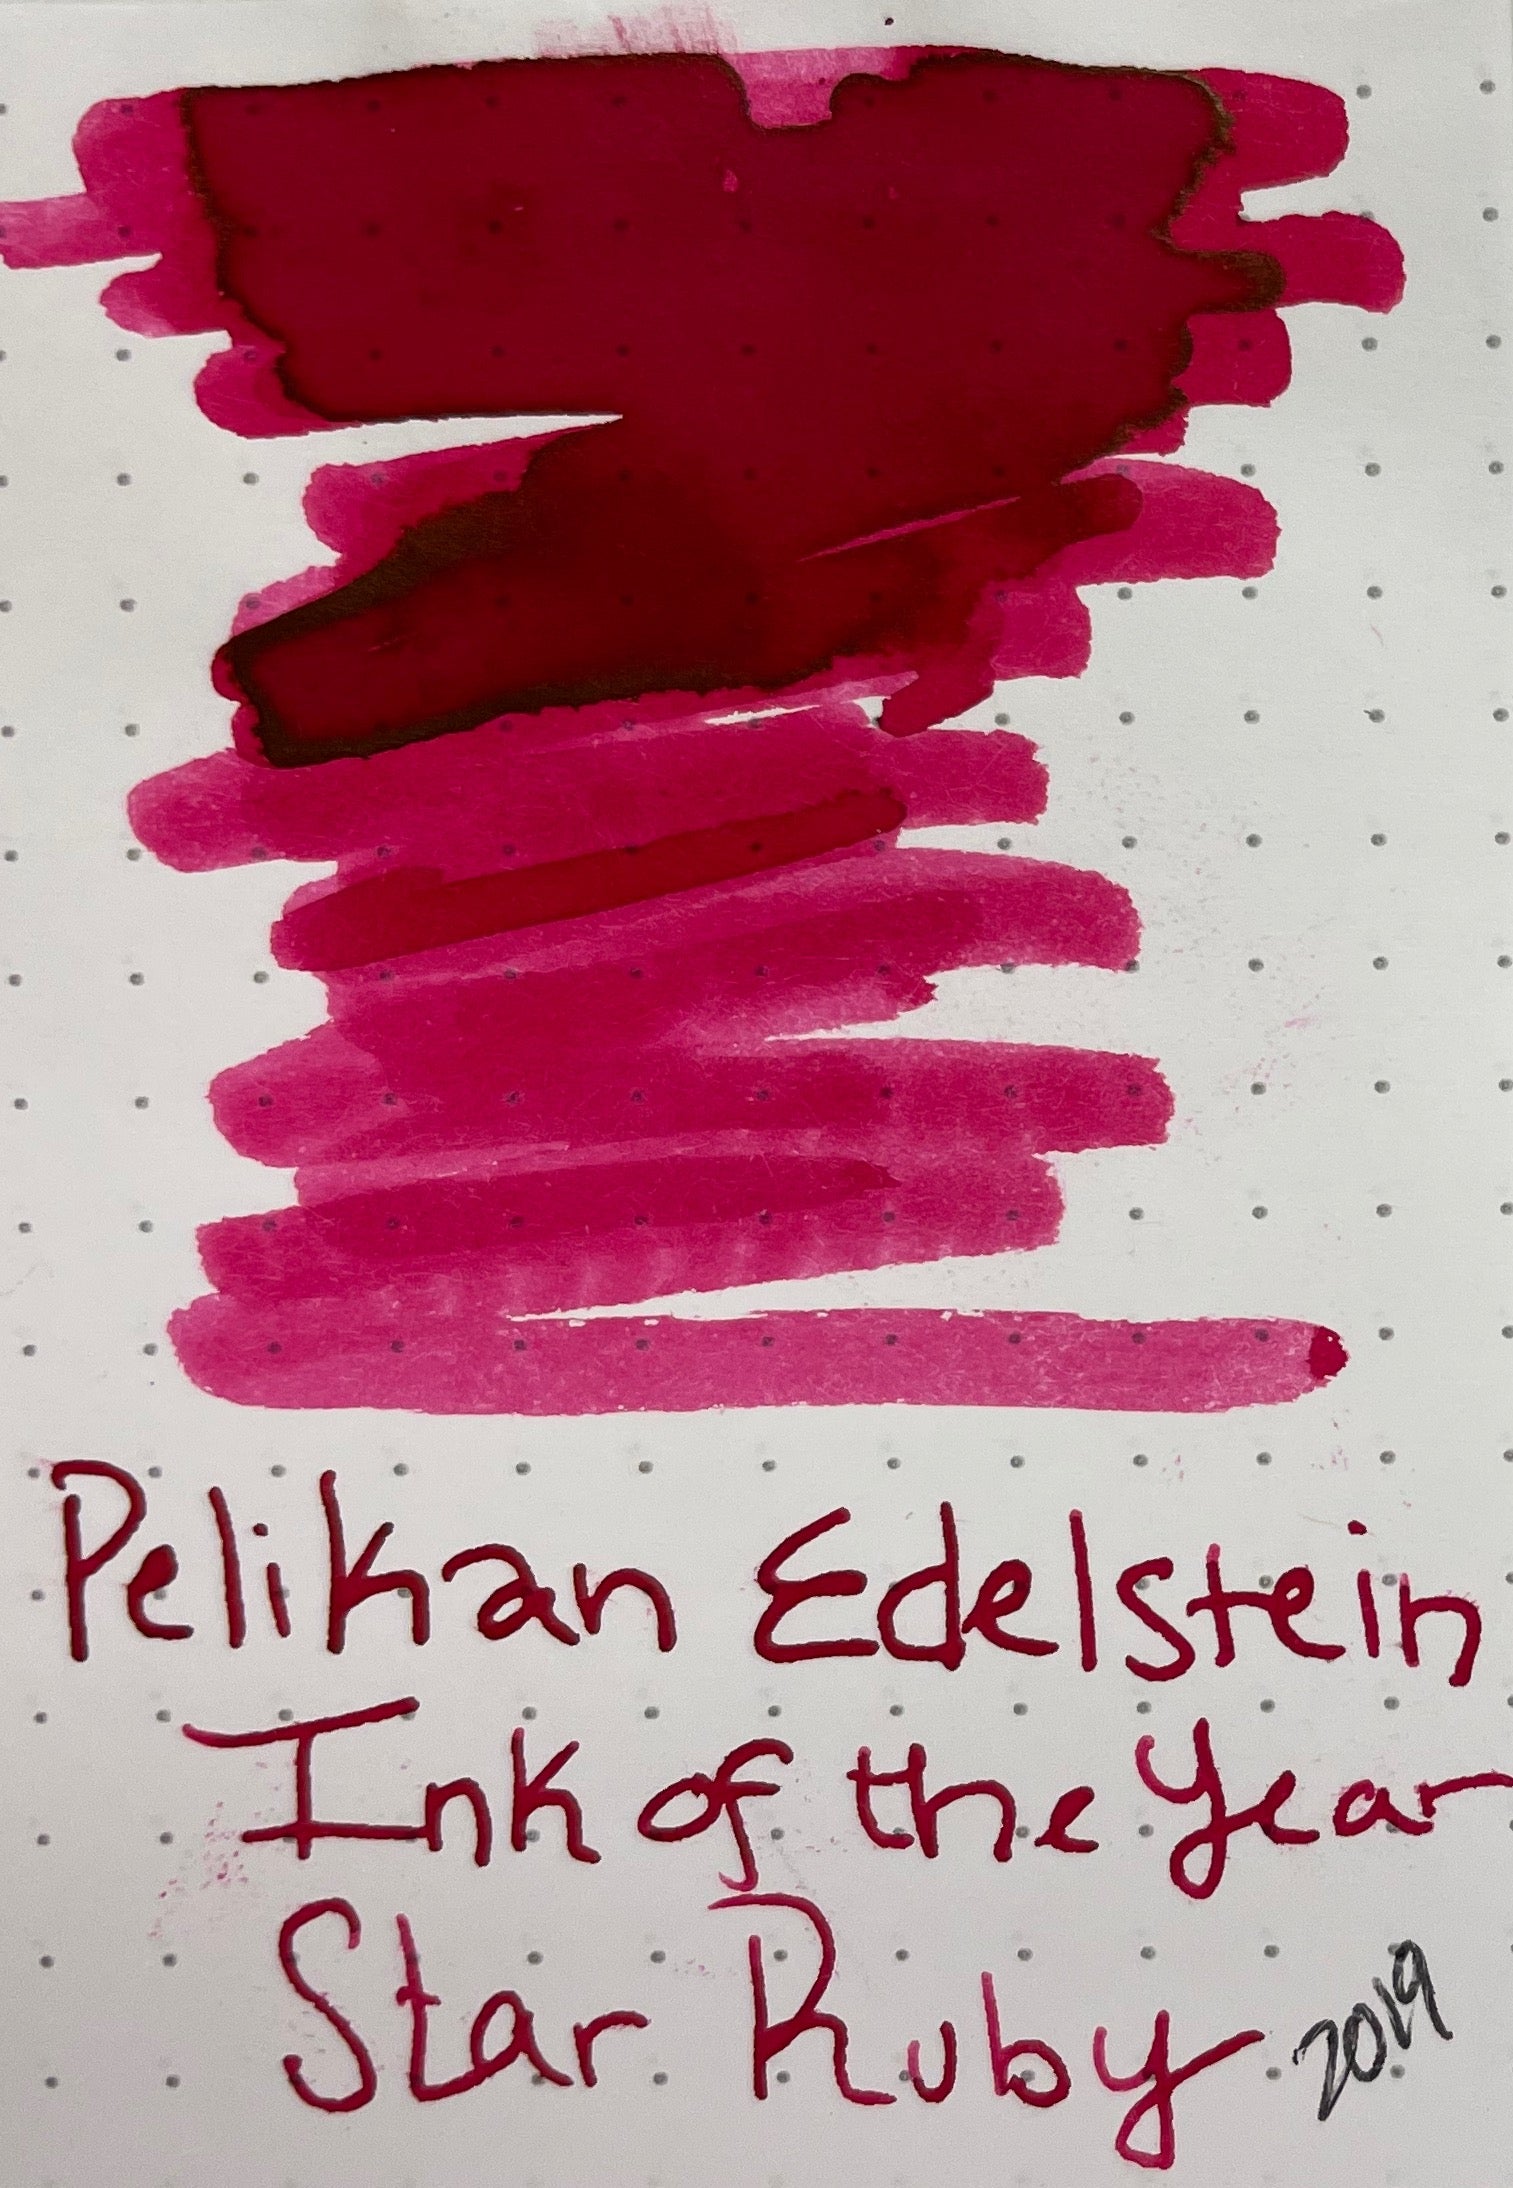 Pelikan Edelstein
Ink of the Year
Star Ruby 2019